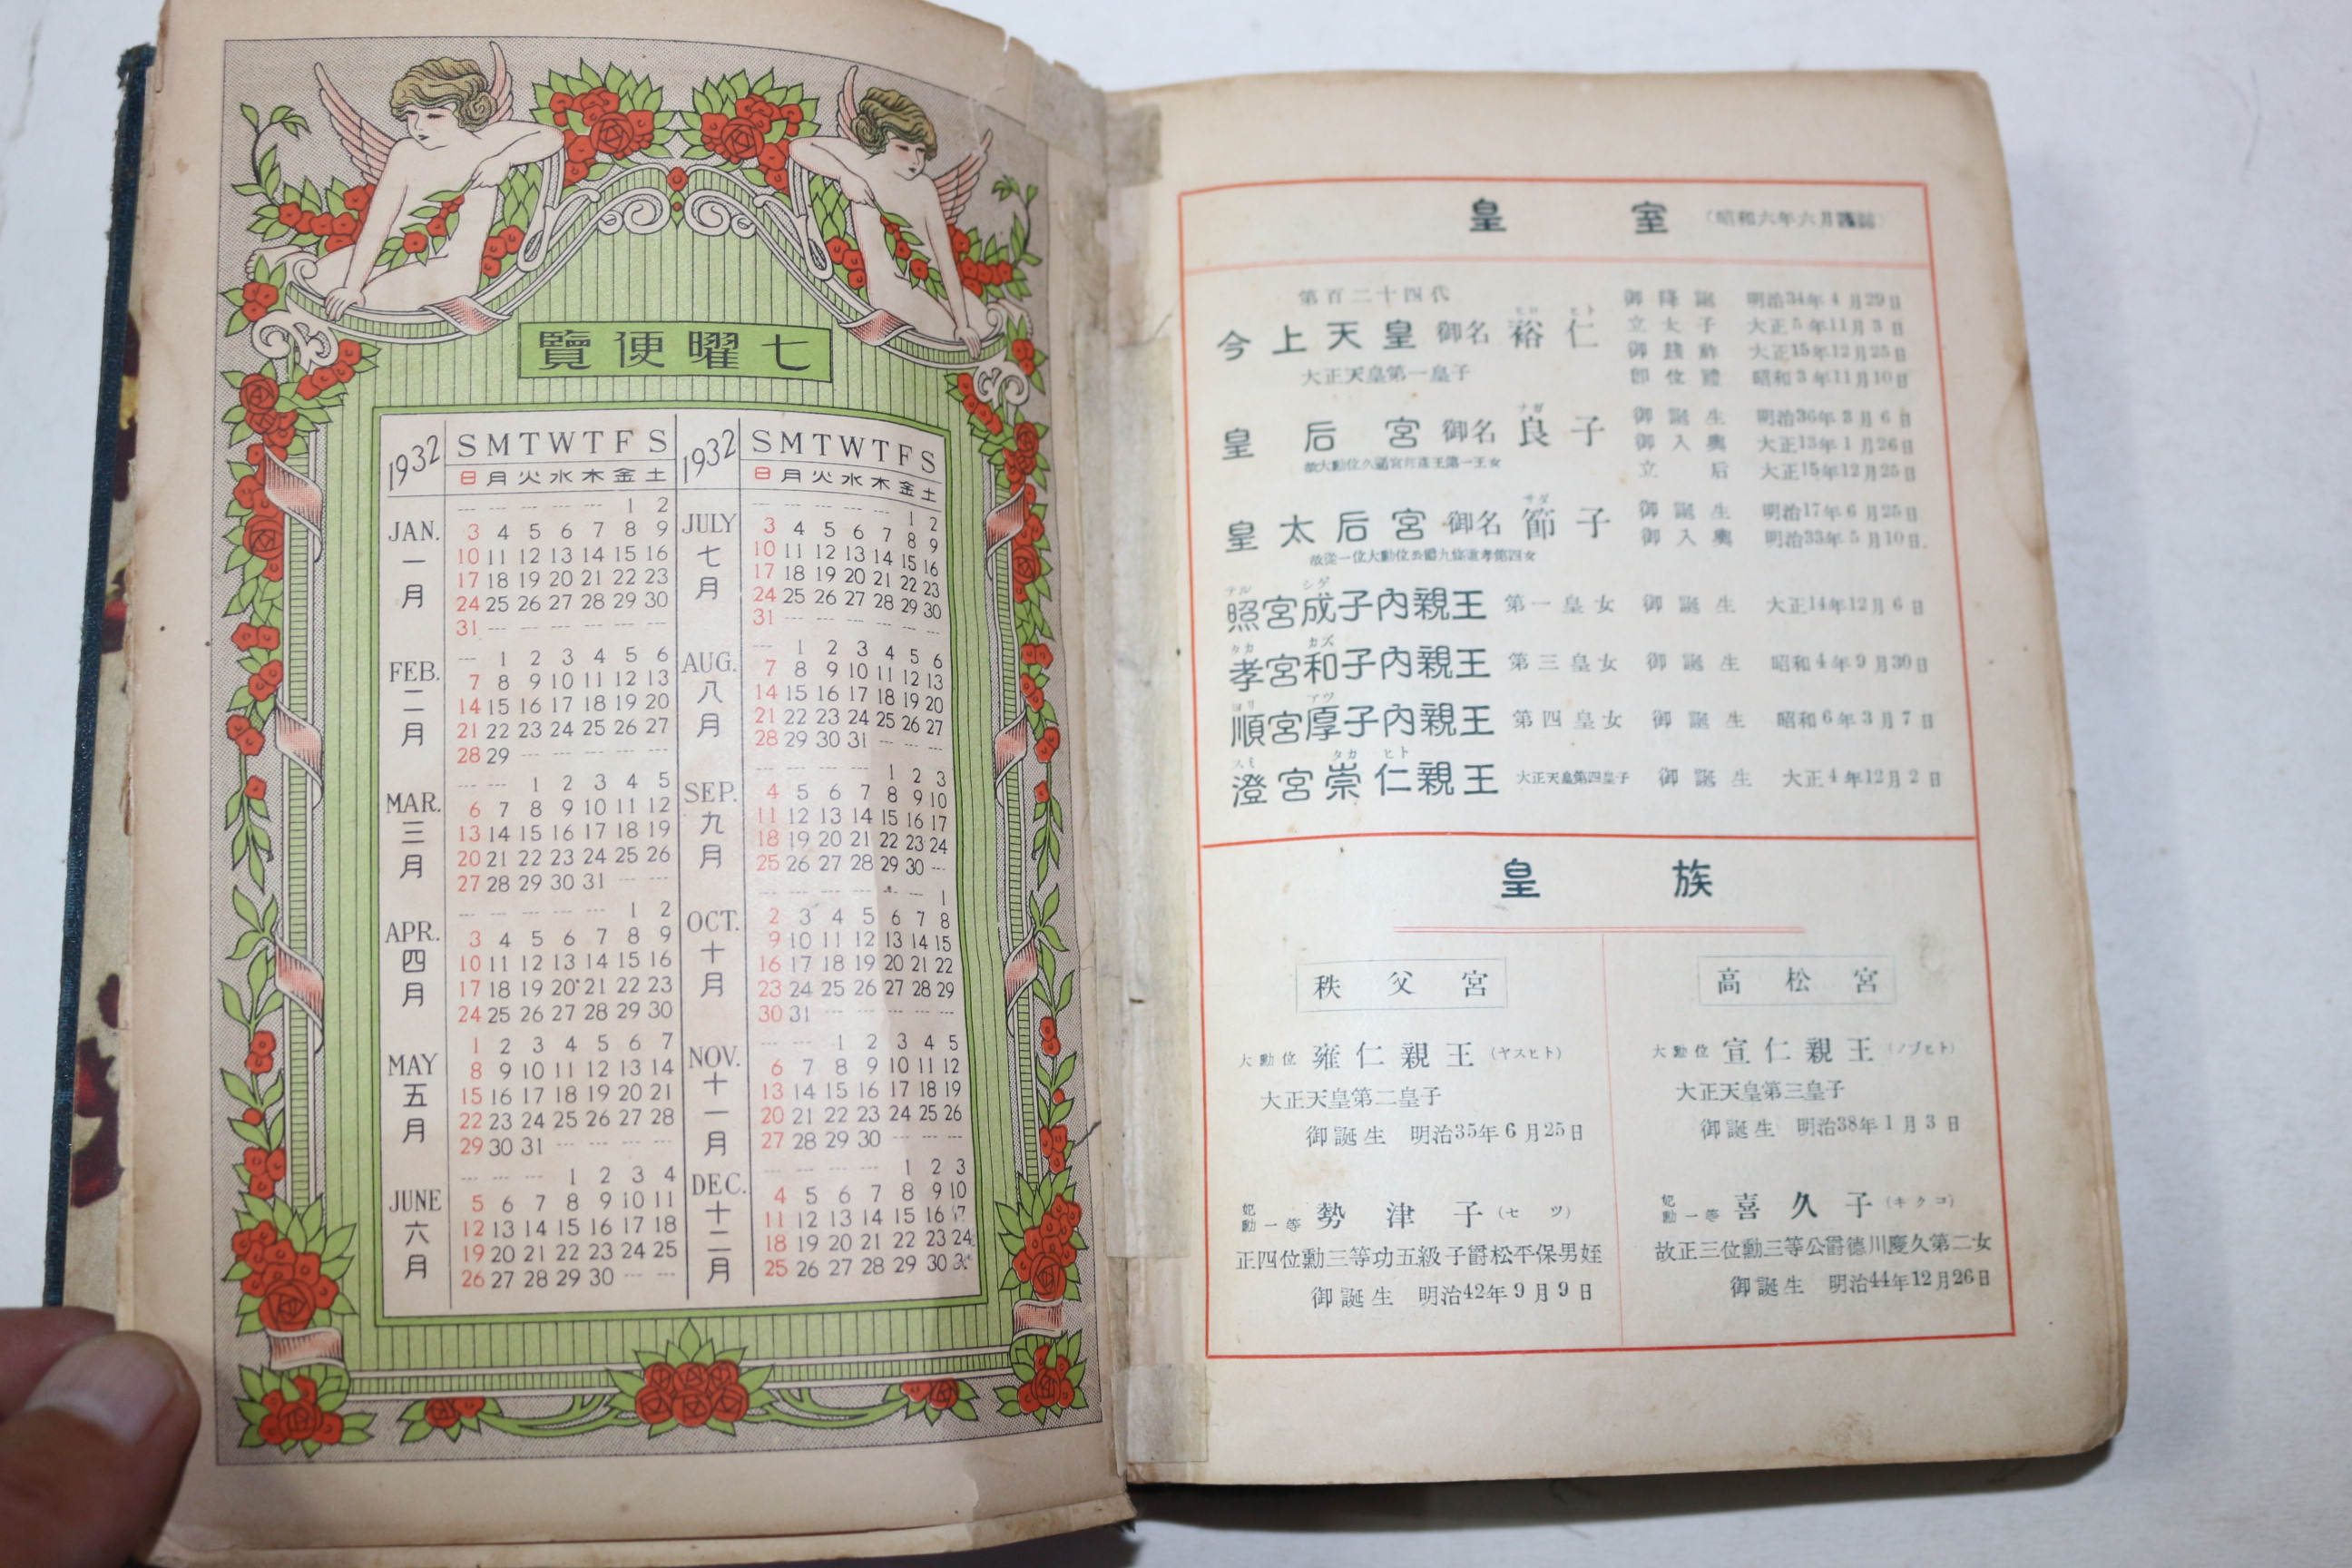 覽便曜七
1932 S M T W T F S
日 月 火 水 木 金 土
JAN. 一月
--- --- --- --- --- 1 2
3 4 5 6 7 8 9
10 11 12 13 14 15 16
17 18 19 20 21 22 23
24 25 26 27 28 29 30
31 --- --- --- --- --- ---
FEB. 二月
--- 1 2 3 4 5 6
7 8 9 10 11 12 13
14 15 16 17 18 19 20
21 22 23 24 25 26 27
28 29 --- --- --- --- ---
MAR. 三月
--- --- 1 2 3 4 5
6 7 8 9 10 11 12
13 14 15 16 17 18 19
20 21 22 23 24 25 26
27 28 29 30 31 --- ---
APR. 四月
--- --- --- --- --- 1 2
3 4 5 6 7 8 9
10 11 12 13 14 15 16
17 18 19 20 21 22 23
24 25 26 27 28 29 30
MAY 五月
1 2 3 4 5 6 7
8 9 10 11 12 13 14
15 16 17 18 19 20 21
22 23 24 25 26 27 28
29 30 31 --- --- --- ---
JUNE 六月
--- --- --- 1 2 3 4
5 6 7 8 9 10 11
12 13 14 15 16 17 18
19 20 21 22 23 24 25
26 27 28 29 30 --- ---
1932 S M T W T F S
日 月 火 水 木 金 土
JULY 七月
--- --- --- --- --- 1 2
3 4 5 6 7 8 9
10 11 12 13 14 15 16
17 18 19 20 21 22 23
24 25 26 27 28 29 30
31 --- --- --- --- --- ---
AUG. 八月
--- 1 2 3 4 5 6
7 8 9 10 11 12 13
14 15 16 17 18 19 20
21 22 23 24 25 26 27
28 29 30 31 --- --- ---
SEP. 九月
--- --- --- --- 1 2 3
4 5 6 7 8 9 10
11 12 13 14 15 16 17
18 19 20 21 22 23 24
25 26 27 28 29 30 ---
OCT. 十月
--- --- --- --- --- --- 1
2 3 4 5 6 7 8
9 10 11 12 13 14 15
16 17 18 19 20 21 22
23 24 25 26 27 28 29
30 31 --- --- --- --- ---
NOV. 十一月
--- --- 1 2 3 4 5
6 7 8 9 10 11 12
13 14 15 16 17 18 19
20 21 22 23 24 25 26
27 28 29 30 --- --- ---
DEC. 十二月
--- --- --- --- 1 2 3
4 5 6 7 8 9 10
11 12 13 14 15 16 17
18 19 20 21 22 23 24
25 26 27 28 29 30 31
皇室 (昭和六年六月謹誌)
第百二十四代
今上天皇 御名 裕仁 ヒロ ヒト
大正天皇第一皇子
御降誕 明治34年4月29日
立太子 大正5年11月3日
御踐祚 大正15年12月25日
卽位禮 昭和3年11月10日
皇后宮 御名 良子 ナガ
故大勳位久邇宮邦彥王第一王女
御誕生 明治36年3月6日
御入輿 大正13年1月26日
立后 大正15年12月25日
皇太后宮 御名 節子 サダ
故從一位大勳位公爵九條道孝第四女
御誕生 明治17年6月25日
御入輿 明治33年5月10日
テル シゲ
照宮成子內親王 第一皇女 御誕生 大正14年12月6日
タカ カズ
孝宮和子內親王 第三皇女 御誕生 昭和4年9月30日
ヨリ アツ
順宮厚子內親王 第四皇女 御誕生 昭和6年3月7日
スミ タカ ヒト
澄宮崇仁親王 大正天皇第四皇子 御誕生 大正4年12月2日
皇族
秩父宮
大勳位 雍仁親王 (ヤスヒト)
大正天皇第二皇子
御誕生 明治35年6月25日
妃 勳一等 勢津子 (セツ)
正四位勳三等功五級子爵松平保男姪
御誕生 明治42年9月9日
高松宮
大勳位 宣仁親王 (ノブヒト)
大正天皇第三皇子
御誕生 明治38年1月3日
妃 勳一等 喜久子 (キクコ)
故正三位勳三等公爵德川慶久第二女
御誕生 明治44年12月26日